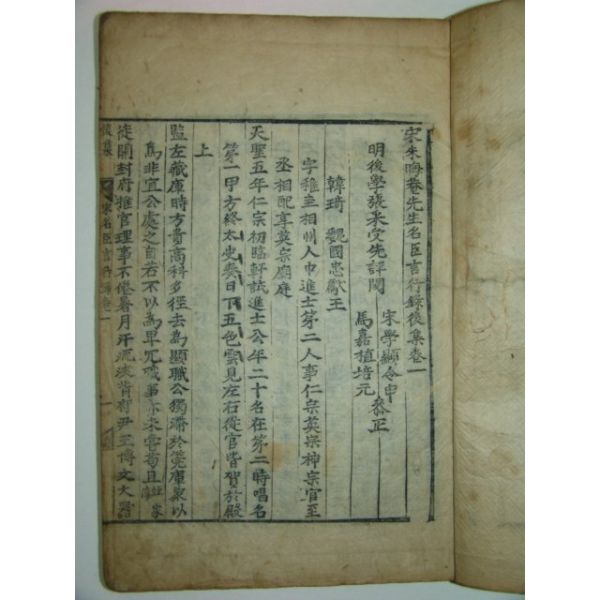 宋朱晦菴先生名臣言行錄後集卷一
明後學張采受先評閱
宋學顯令申
馬嘉植培元
恭正
韓琦 魏國忠獻王
字稚圭相州人中進士第二人事仁宗英宗神宗官至
丞相配享英宗廟庭
天聖五年仁宗初臨軒試進士公年二十名在第二時唱名
第一甲方終太史奏日下五色雲見左右從官皆賀於殿
上
監左藏庫時方貴高科多徑去為顯職公獨滯於筦庫衆以
為非宜公處之自若不以為卑冗職事亦未嘗苟且
徒開封府推官理事不倦暑月汗流浹背府尹王博文大器
後集
宋名臣言行錄卷一